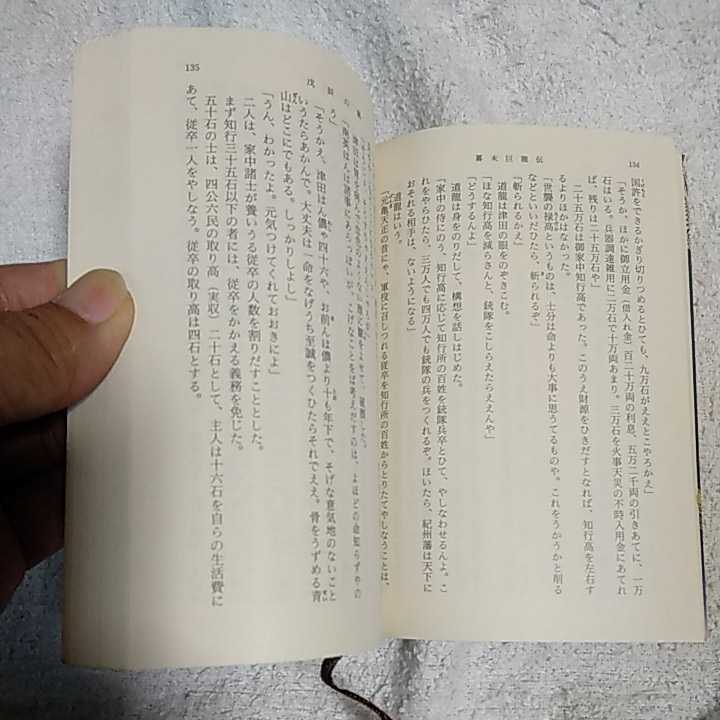 134
幕末巨龍伝
国許をできるかぎり切りつめるとひても、九万石がええとこやろかえ」
「そうか、ほかに御立用金（借入れ金）百二十万両の利息、五万二千両の引きあてに、一万
石はいる。兵器調達雑用に二万石で十万両あまり。三万石を火事天災の不時入用金にあてれ
ば、残りは二十五万石や」
二十五万石は御家中知行高であった。このうえ財源をひきだすとなれば、知行高を左右す
るよりほかはなかった。
「世襲の禄高というものは、士分は命よりも大事に思うてるものや。これをうかうかと削る
などといいだひたら、斬られるぞ」
「斬られるかえ」
道龍は津田の眼をのぞきこむ。
「ほな知行高を減らさんと、銃隊をこしらえたらええんや」
「どうするんよ」
道龍は身をのりだして、構想を話しはじめた。
「家中の侍にのう、知行高に応じて知行所の百姓を銃隊兵卒とひて、やしなわせるんよ。こ
れをやらひたら、三万人でも四万人でも銃隊の兵をつくれるぞ。ほいたら、紀州藩は天下に
おそれる相手は、ないようになる」
道龍はいう。
「元亀天正の昔にや、軍役に召しつれる従卒を知行所の百姓からとりたてやしなうことは、
135
戊辰の
う」
「そうかえ、津田はん儂や四十六や、お前んは儂より十も年下で、そげな意気地のないこと
いうたらあかんで。大丈夫は一命をなげうち至誠をつくひたらそれでええ。骨をうずめる青
山はどこにでもある。しっかりしよし」
「うん、わかったよ。元気つけてくれておおきによ」
二人は、家中諸士が養いうる従卒の人数を割りだすこととした。
まず知行三十五石以下の者には、従卒をかかえる義務を免じた。
五十石の士は、四公六民の取り高（実収）二十石として、主人は十六石を自らの生活費に
あて、従卒一人をやしなう。従卒の取り高は四石とする。